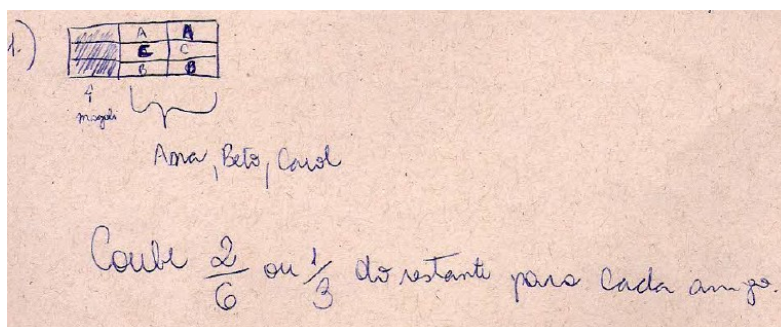 1.)
A A
C C
B B
Magali
Ana, Beto, Carol
Coube 2/6 ou 1/3 do restante para cada amigo.